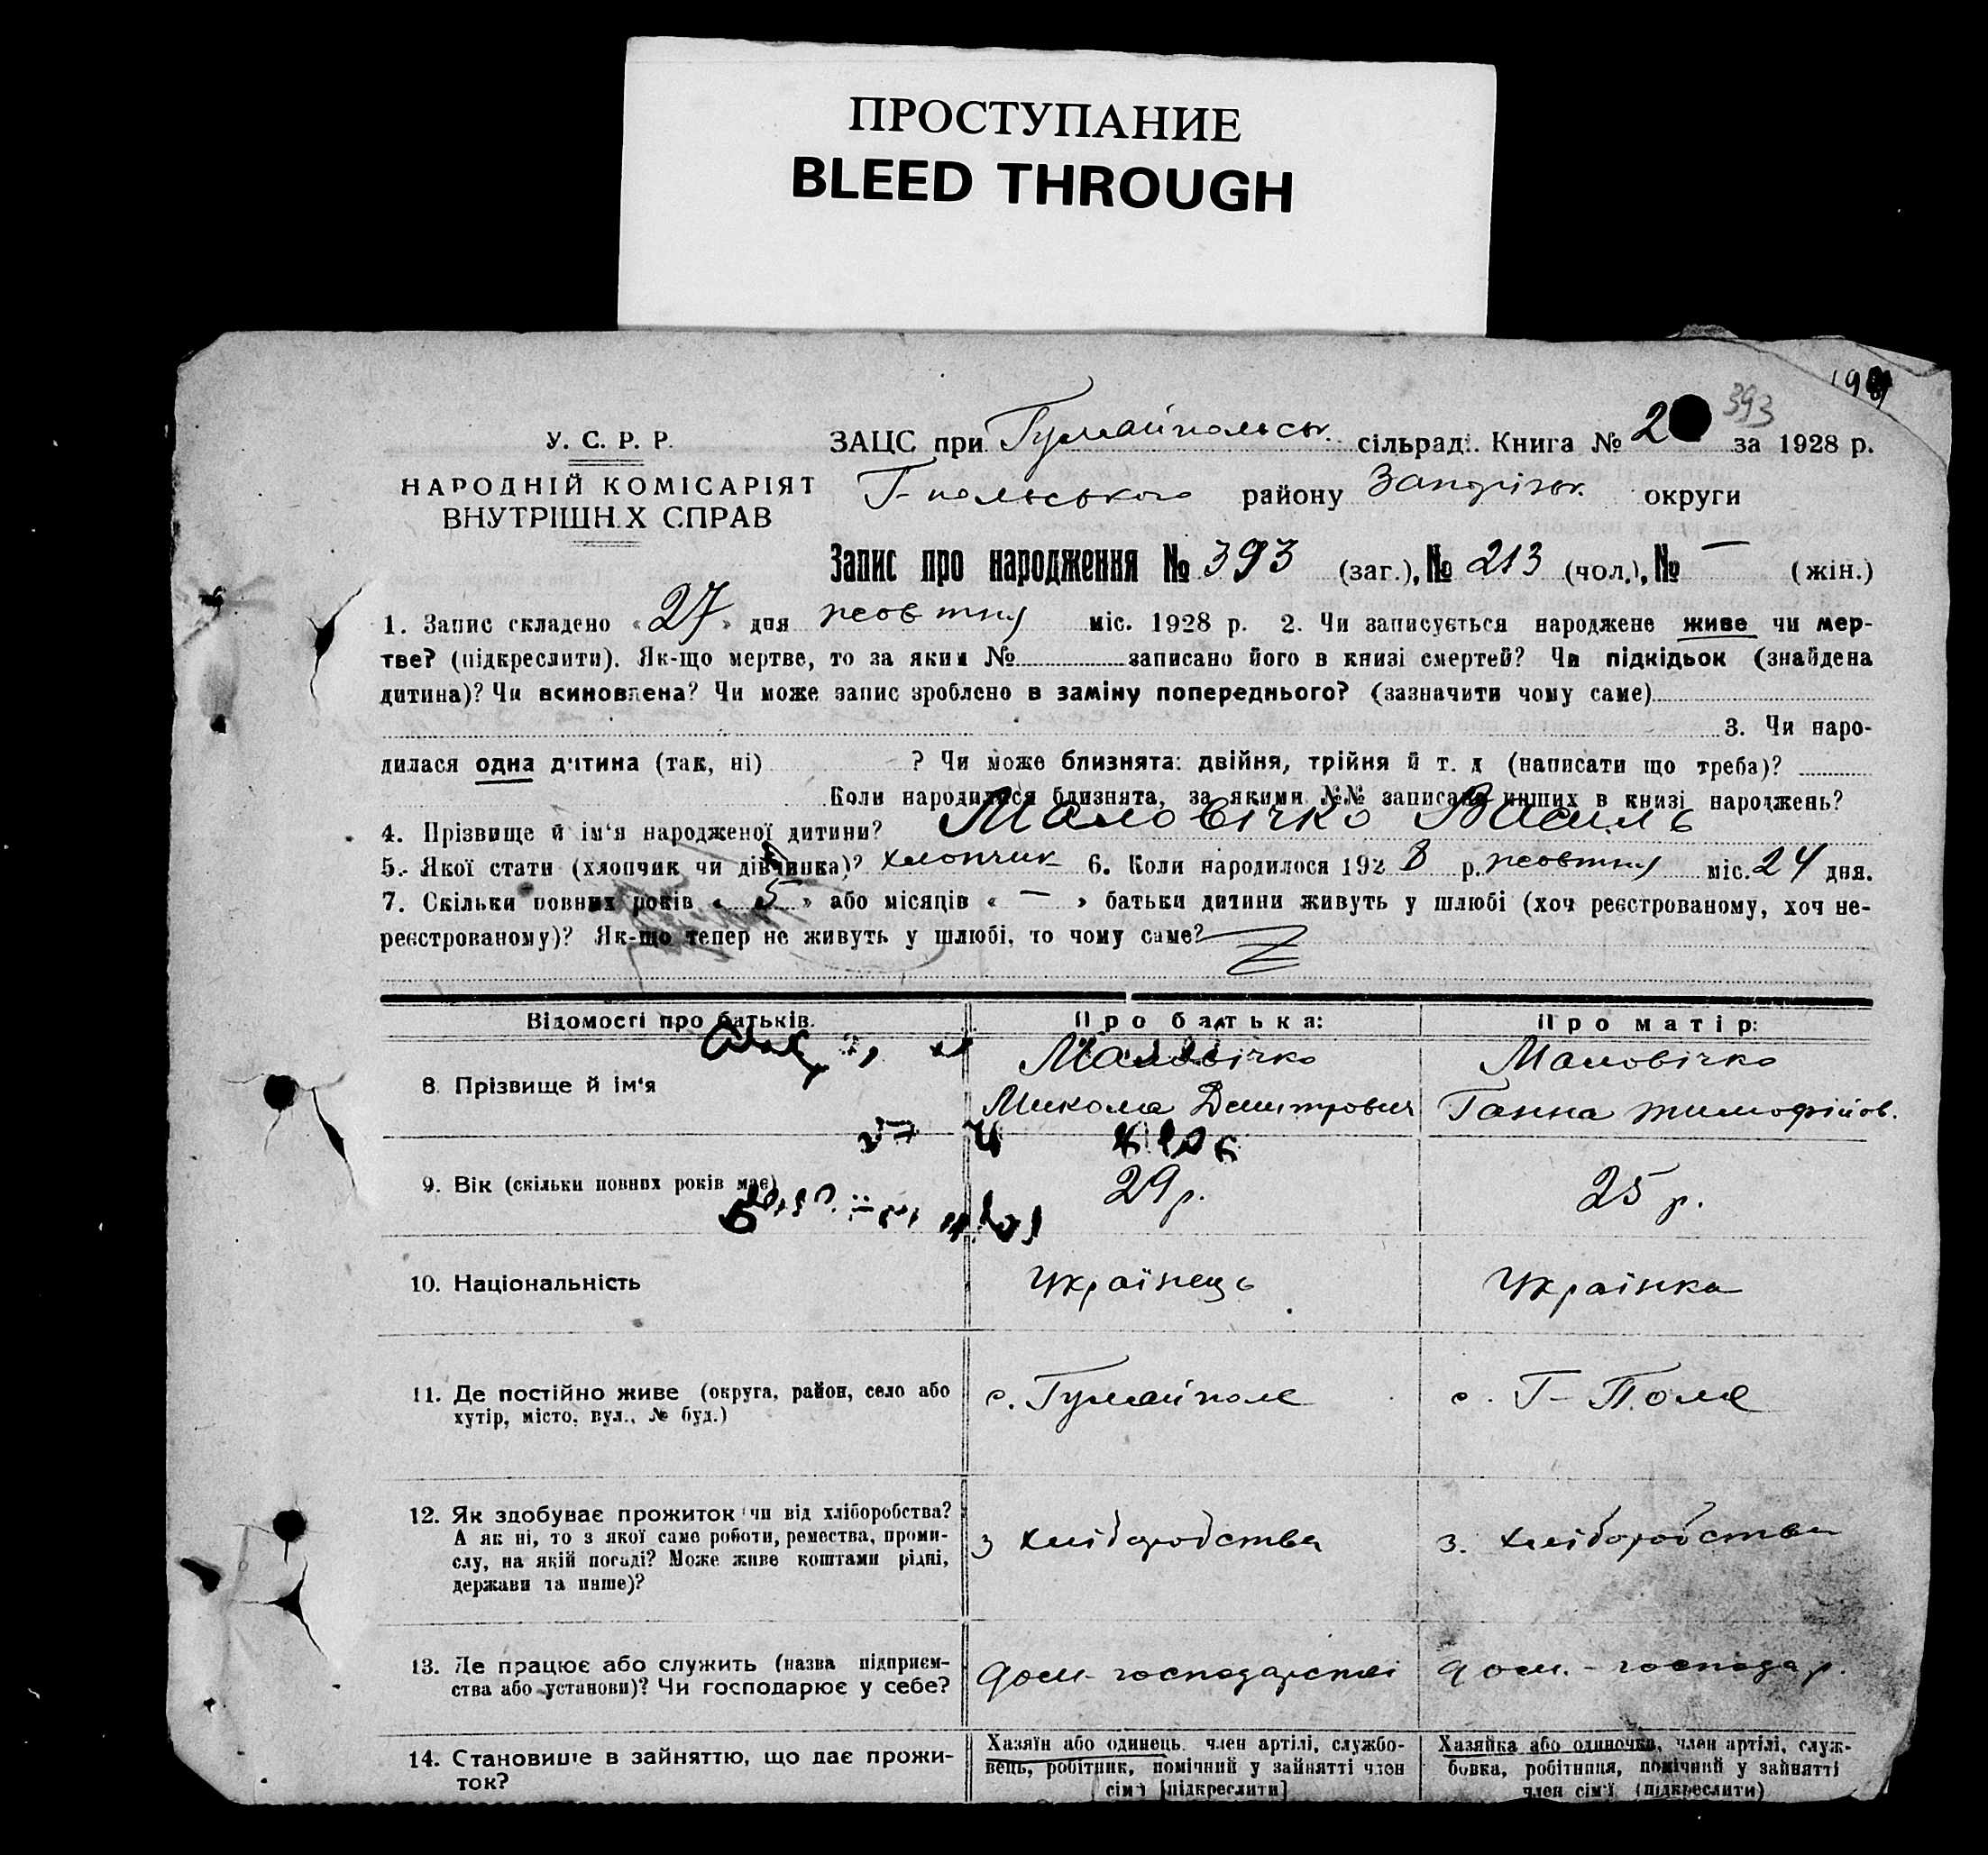 ПРОСТУПАНИЕ
BLEED THROUGH
393
У. С. Р. Р.
НАРОДНІЙ КОМІСАРІЯТ
ВНУТРІШН.Х СПРАВ
ЗАЦС при Гуляйпольськ. сільрад. Книга № 2 за 1928 р.
Г-польського району Запоріжк. округи
Запис про народження № 393 (заг.), № 213 (чол.), № — (жін.)
1. Запис складено « 27 » дня жовтня міс. 1928 р. 2. Чи записується народжене живе чи мер-
тве? (підкреслити). Як-що мертве, то за яким № записано його в книзі смертей? Чи підкідьок (знайдена
дитина)? Чи всиновлена? Чи може запис зроблено в заміну попереднього? (зазначити чому саме)
3. Чи наро-
дилася одна дитина (так, ні) ? Чи може близнята: двійня, трійня й т. д (написати що треба)?
Коли народилися близнята, за якими №№ записано инших в книзі народжень?
4. Прізвище й ім'я народженої дитини? Маловічко Василь
5. Якої стати (хлопчик чи дівчинка)? хлопчик 6. Коли народилося 1928 р. жовтня міс. 24 дня.
7. Скільки повних років « 5 » або місяців « — » батьки дитини живуть у шлюбі (хоч реєстрованому, хоч не-
реєстрованому)? Як-що тепер не живуть у шлюбі, то чому саме?
Відомості про батьків. Про батька: Про матір:
8. Прізвище й ім'я Маловічко Маловічко
Микола Дмитрович Ганна Тимофійов.
9. Вік (скільки повних років має) 29 р. 25 р.
10. Національність Українець Українка
11. Де постійно живе (округа, район, село або с. Гуляйполе с. Г-Поле
хутір, місто, вул., № буд.)
12. Як здобуває прожиток чи від хліборобства?
А як ні, то з якої саме роботи, ремества, проми- з хліборобства з. хліборобства
слу, на якій посаді? Може живе коштами рідні,
держави та инше)?
13. Де працює або служить (назва підприєм- дом-господарстві дом.-господар.
ства або установи)? Чи господарює у себе?
14. Становище в зайняттю, що дає прожи- Хазяїн або одинець. член артілі, службо- Хазяйка або одиночка, член артілі, служ-
ток? вець, робітник, помічний у зайнятті член бовка, робітниця, помічний у зайнятті
сім'ї [підкреслити] член сім'ї (підкреслити)